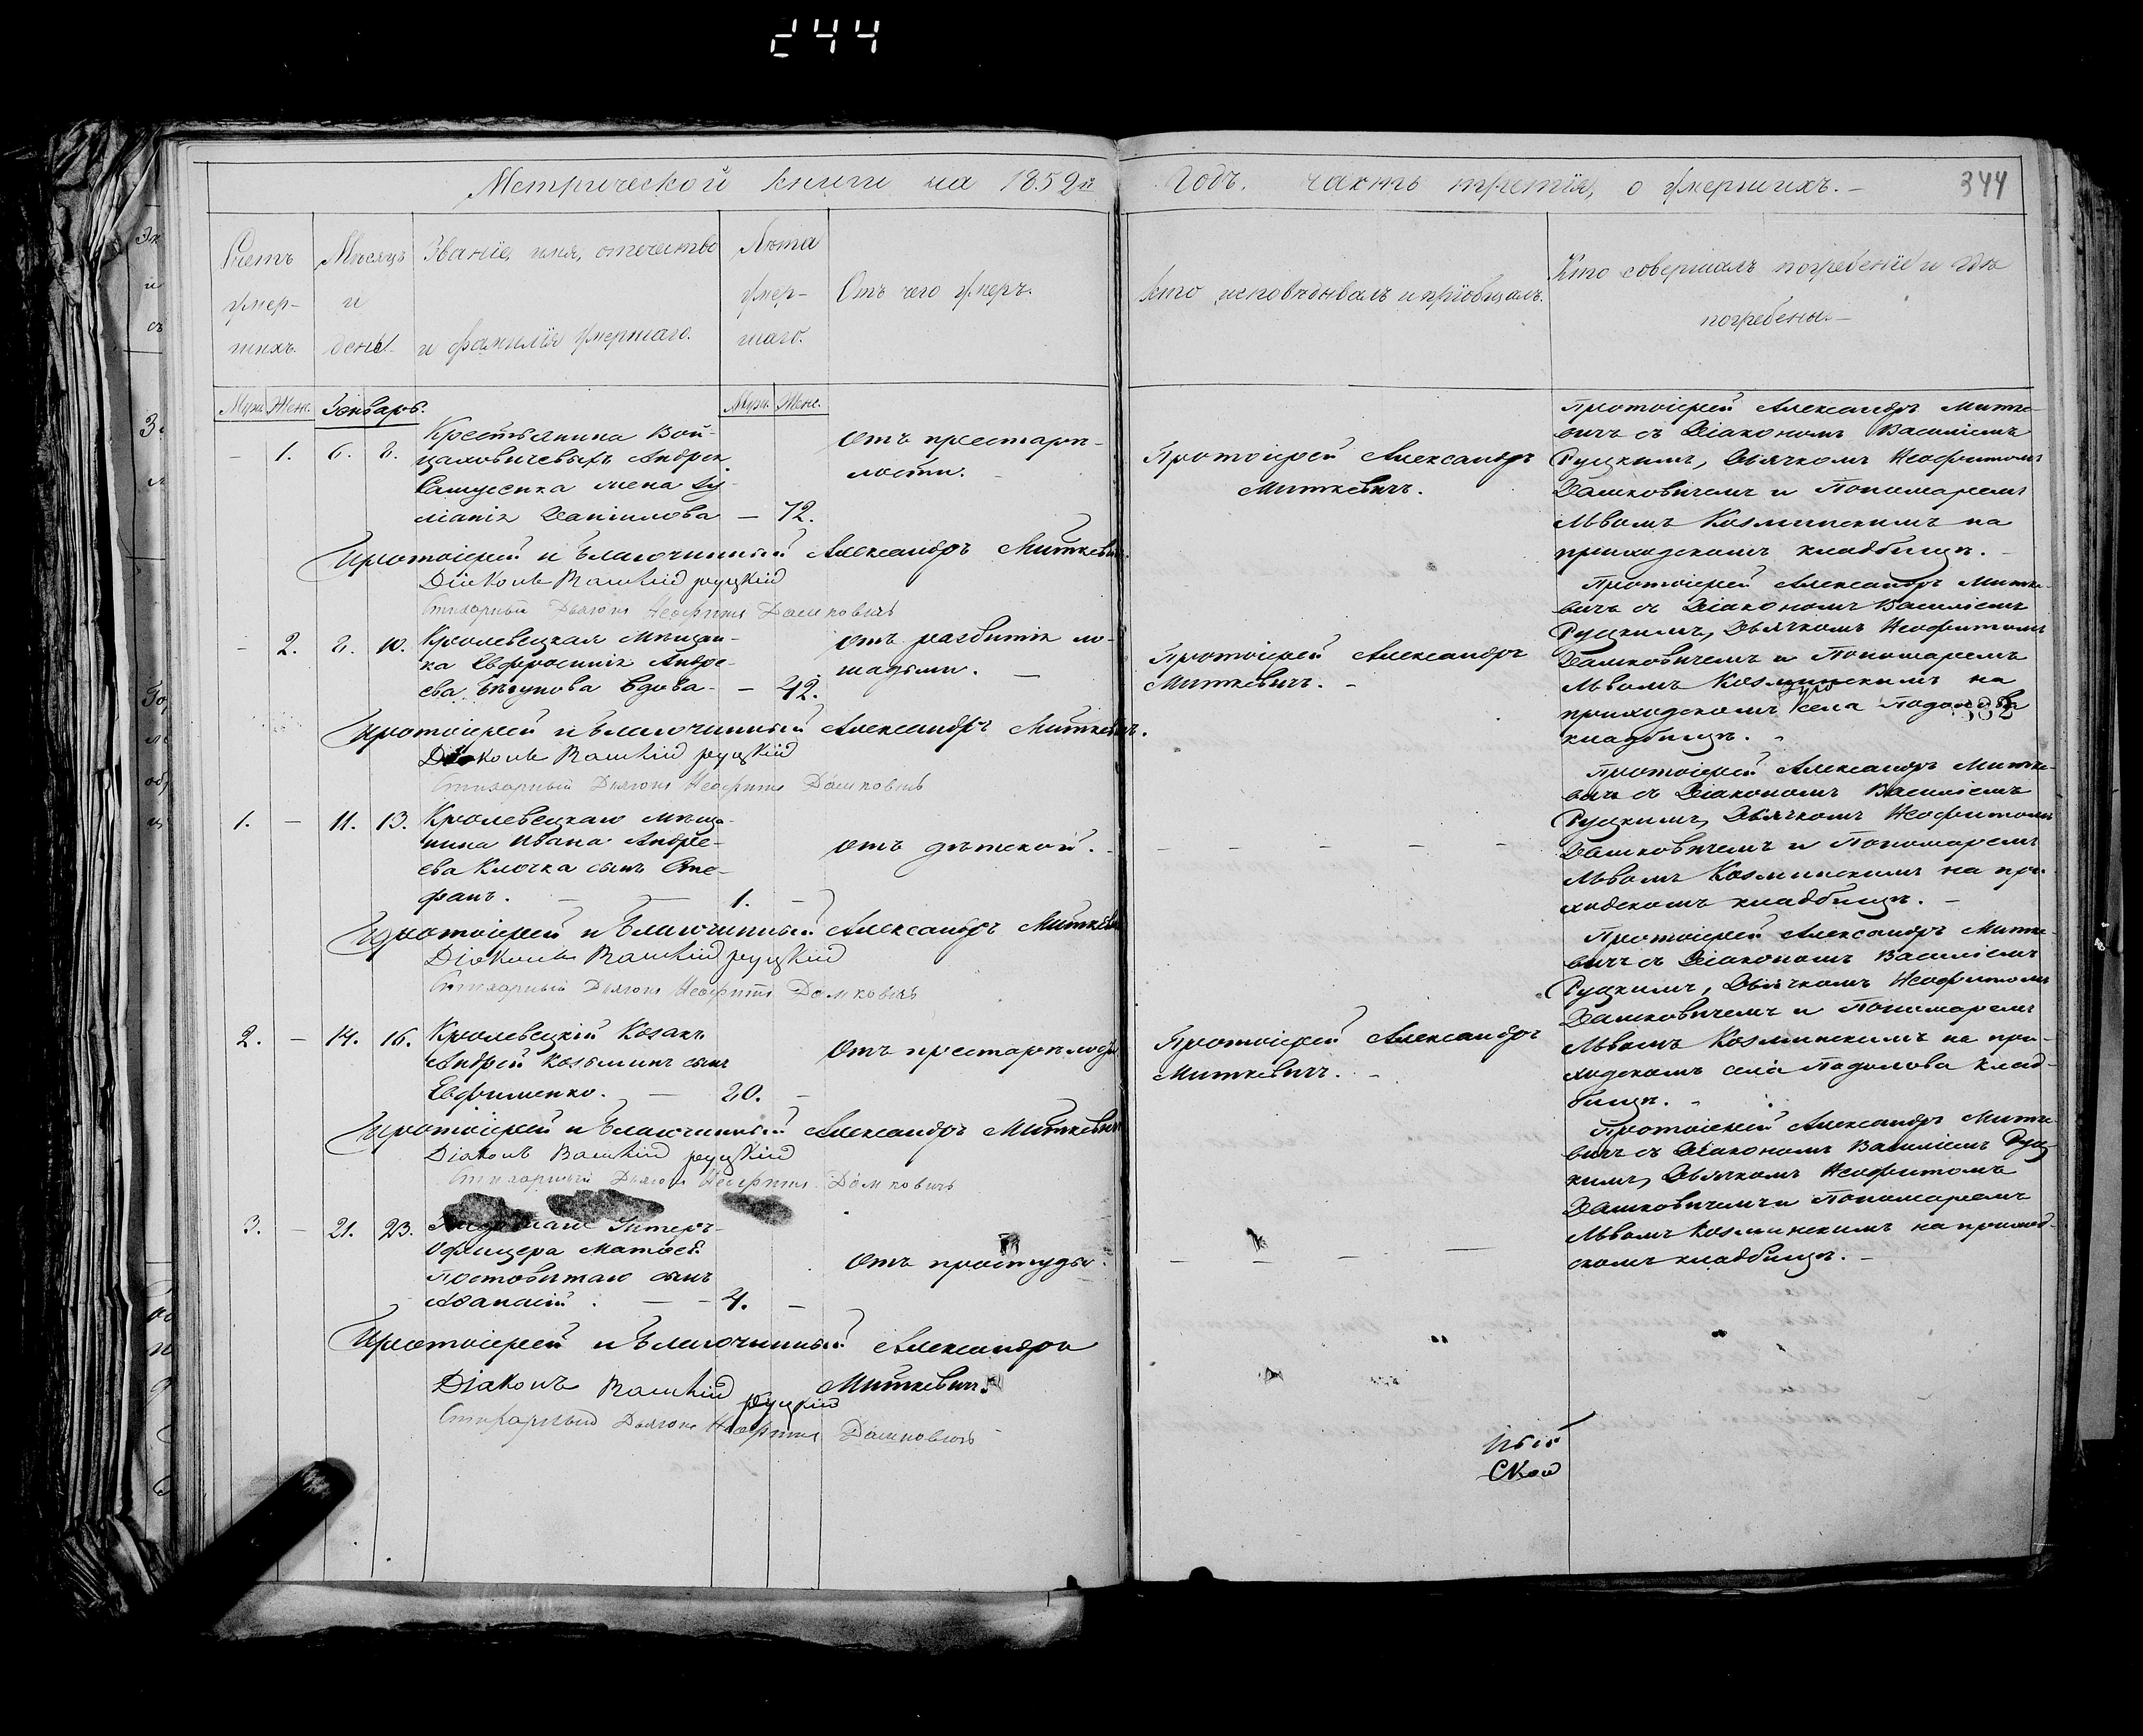 244
Метрической книги на 1852й
годъ. часть третія, о умершихъ.–
344
Счетъ умер- шихъ.
Мѣсяцъ и день
Званіе, имя, отечество
и фамилія умершаго.
Лѣта умер- шаго.
Отъ чего умеръ.
Кто исповѣдывалъ и пріобщалъ.
Кто совершалъ погребеніе и гдѣ
погребены.–
Муж. Жен.
Январь.
Муж. Жен.
– 1. 6. 8.
Крестьянина Вой-
цаховичевыхъ Андрея
жена
Данилова – 72.
Отъ престарѣ-
лости. –
Протоіерей Александръ
Миткевичъ.
Протоіерей Александръ Митке-
вичъ съ Діакономъ Василіемъ
Руцкимъ, Дьячкомъ Неофитомъ
Дашковичемъ и Пономаремъ
Львомъ Козминскимъ на
приходскомъ кладбищѣ. –
Протоіерей и Благочинный Александръ Миткевичъ.
Діаконъ Василій Руцкій
Стихарный Дьячокъ Неофитъ Дашковичъ
– 2. 8. 10.
Кролевецкая мѣщан-
ка Евфросинія Андре-
ева Бѣгунова вдова – – 42.
Отъ разбитія ло-
шадьми. –
Протоіерей Александръ
Миткевичъ. –
Протоіерей Александръ Митке-
вичъ съ Діакономъ Василіемъ
Руцкимъ, Дьячкомъ Неофитомъ
Дашковичемъ и Пономаремъ
Львомъ Козминскимъ на
приходскомъ села Подолова
кладбищѣ.
Протоіерей и Благочинный Александръ Миткевичъ.
Діаконъ Василій Руцкій
Стихарный Дьячокъ Неофитъ Дашковичъ
1. – 11. 13.
Кролевецкаго мѣща-
нина Ивана Андре-
ева Клочка сынъ Сте-
фанъ. – – 1. –
Отъ дѣтской. –
– – – – –
Протоіерей Александръ Митке-
вичъ съ Діакономъ Василіемъ
Руцкимъ, Дьячкомъ Неофитомъ
Дашковичемъ и Пономаремъ
Львомъ Козминскимъ на при-
ходскомъ кладбищѣ. –
Протоіерей и Благочинный Александръ Миткевичъ
Діаконъ Василій Руцкій
Стихарный Дьячокъ Неофитъ Дашковичъ
2. – 14. 16.
Кролевецкій Козакъ
Андрей Козьминъ сынъ
Евфименко. – 20. –
Отъ престарѣлости
Протоіерей Александръ
Миткевичъ. –
Протоіерей Александръ Митке-
вичъ съ Діакономъ Василіемъ
Руцкимъ, Дьячкомъ Неофитомъ
Дашковичемъ и Пономаремъ
Львомъ Козминскимъ на при-
ходскомъ села Подолова клад-
бищѣ. –
Протоіерей и Благочинный Александръ Миткевичъ
Діаконъ Василій Руцкій
Стихарный Дьячокъ Неофитъ Дашковичъ
3. – 21. 23.
Унтеръ-
Офицера Матвея
Постовитаго сынъ
Афанасій. – – 4. –
Отъ простуды.
– – – –
Протоіерей Александръ Митке-
вичъ съ Діакономъ Василіемъ Руц-
кимъ, Дьячкомъ Неофитомъ
Дашковичемъ и Пономаремъ
Львомъ Козминскимъ на приход-
скомъ кладбищѣ. –
Протоіерей и Благочинный Александръ
Миткевичъ.
Діаконъ Василій Руцкій
Стихарный Дьячокъ Неофитъ Дашковичъ
ской